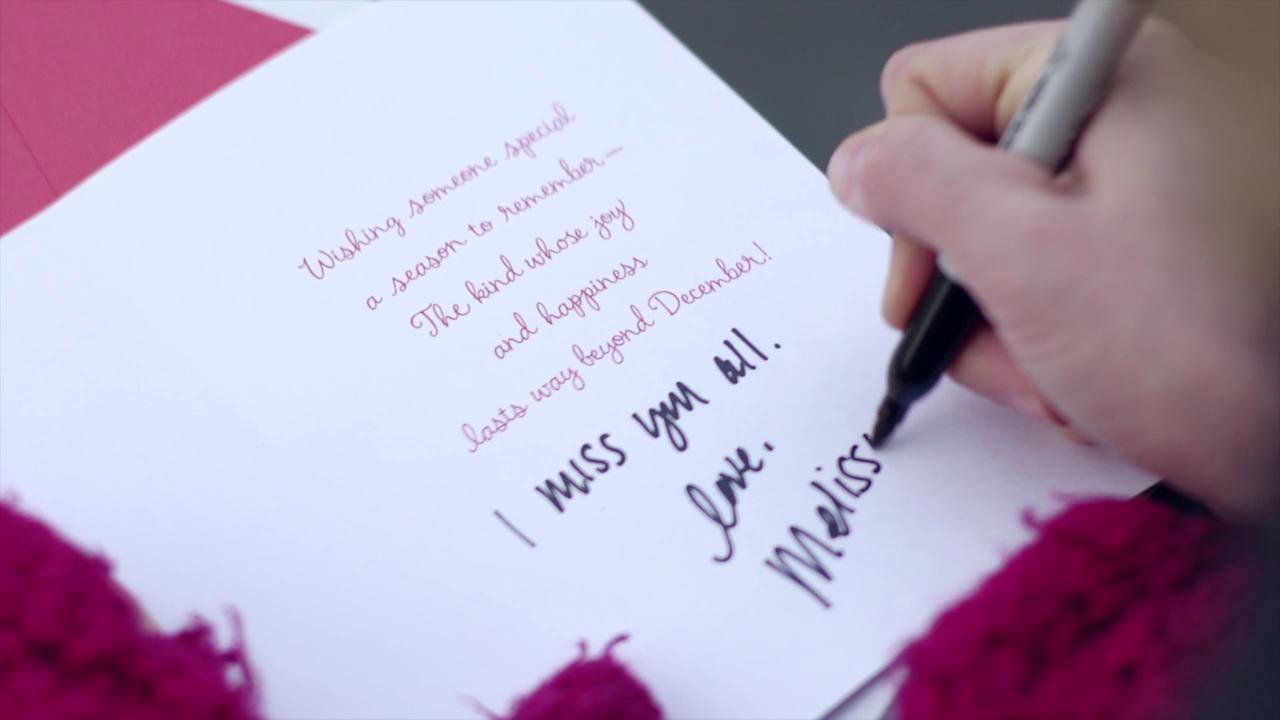 Wishing someone special
a season to remember—
The kind whose joy
and happiness
lasts way beyond December!
I miss you all.
love.
Meliss